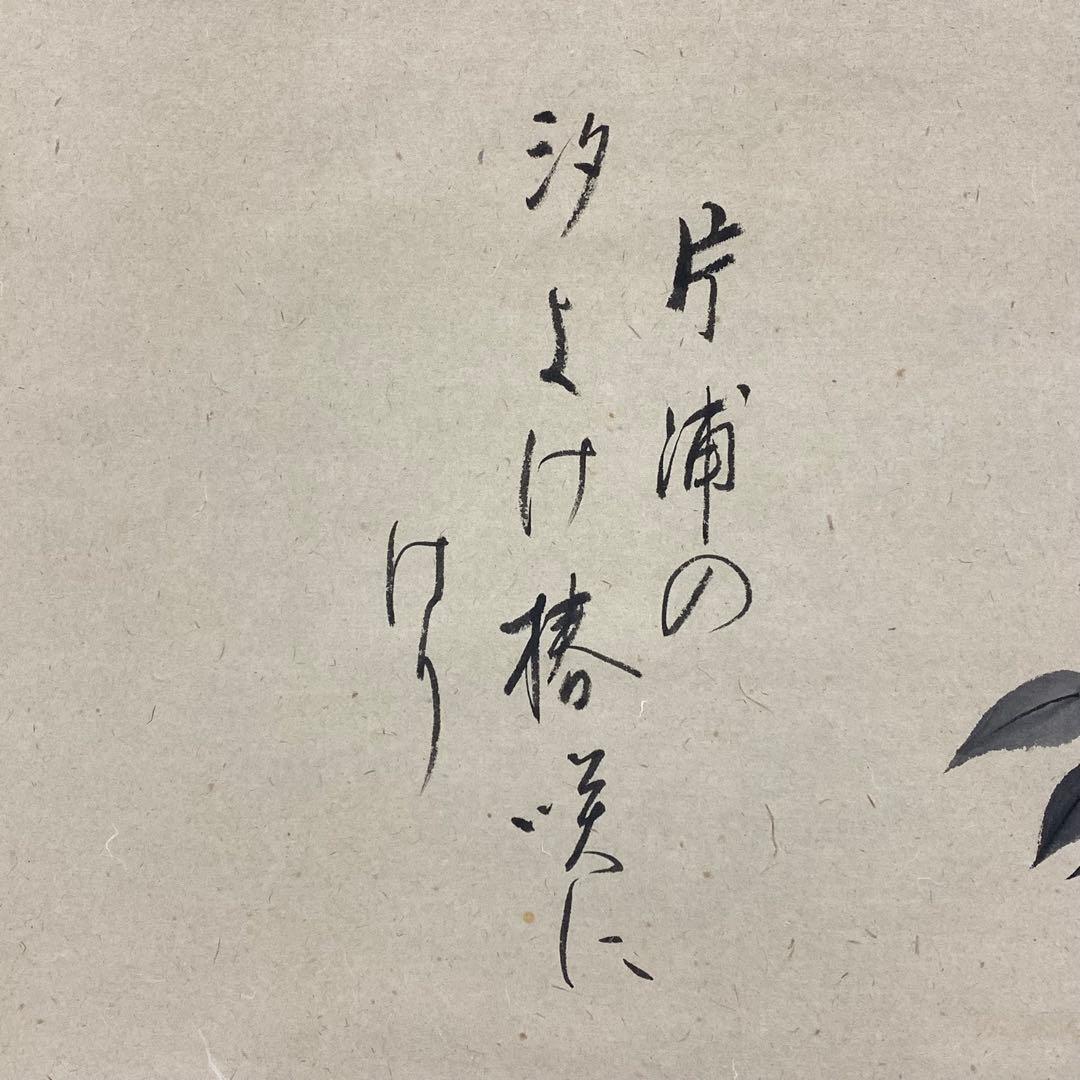 片浦の
汐よけ椿咲に
けり